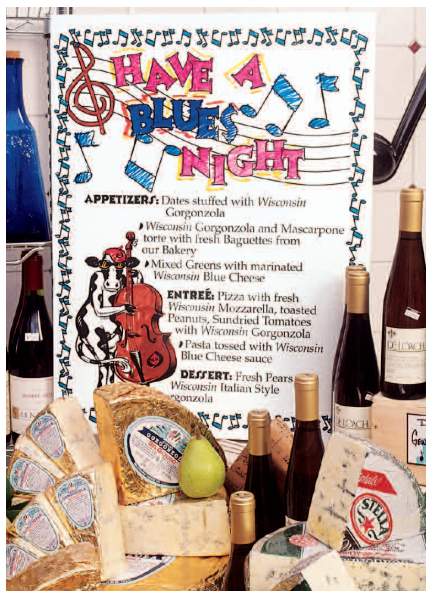 HAVE A
BLUES
NIGHT
APPETIZERS: Dates stuffed with Wisconsin
Gorgonzola
Wisconsin Gorgonzola and Mascarpone
torte with fresh Baguettes from
our Bakery
Mixed Greens with marinated
Wisconsin Blue Cheese
ENTREÉ: Pizza with fresh
Wisconsin Mozzarella, toasted
Peanuts, Sundried Tomatoes
with Wisconsin Gorgonzola
Pasta tossed with Wisconsin
Blue Cheese sauce
DESSERT: Fresh Pears
Wisconsin Italian Style
DE LOACH
DE LOACH
GORGONZOLA
STELLA